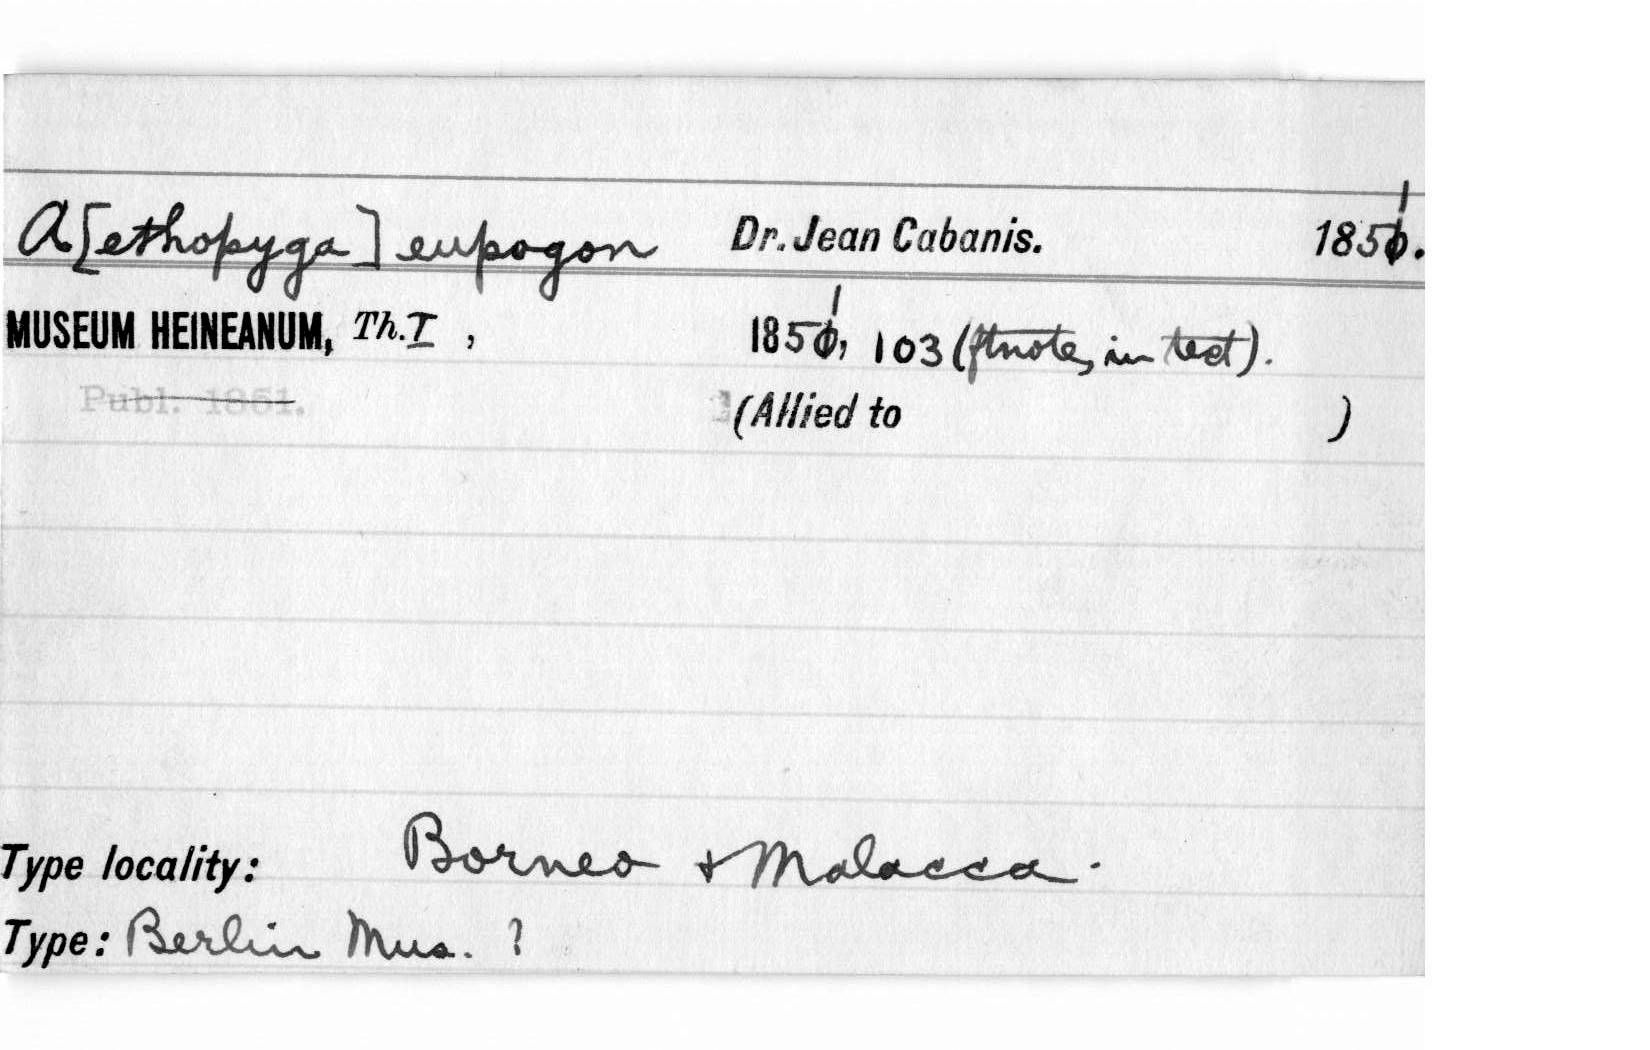 A[ethopyga] eupogon Dr. Jean Cabanis. 1851.
MUSEUM HEINEANUM, Th. I, 1851, 103 (ftnote, in text).
Publ. 1851. (Allied to )
Type locality: Borneo + Malacca.
Type: Berlin Mus. ?